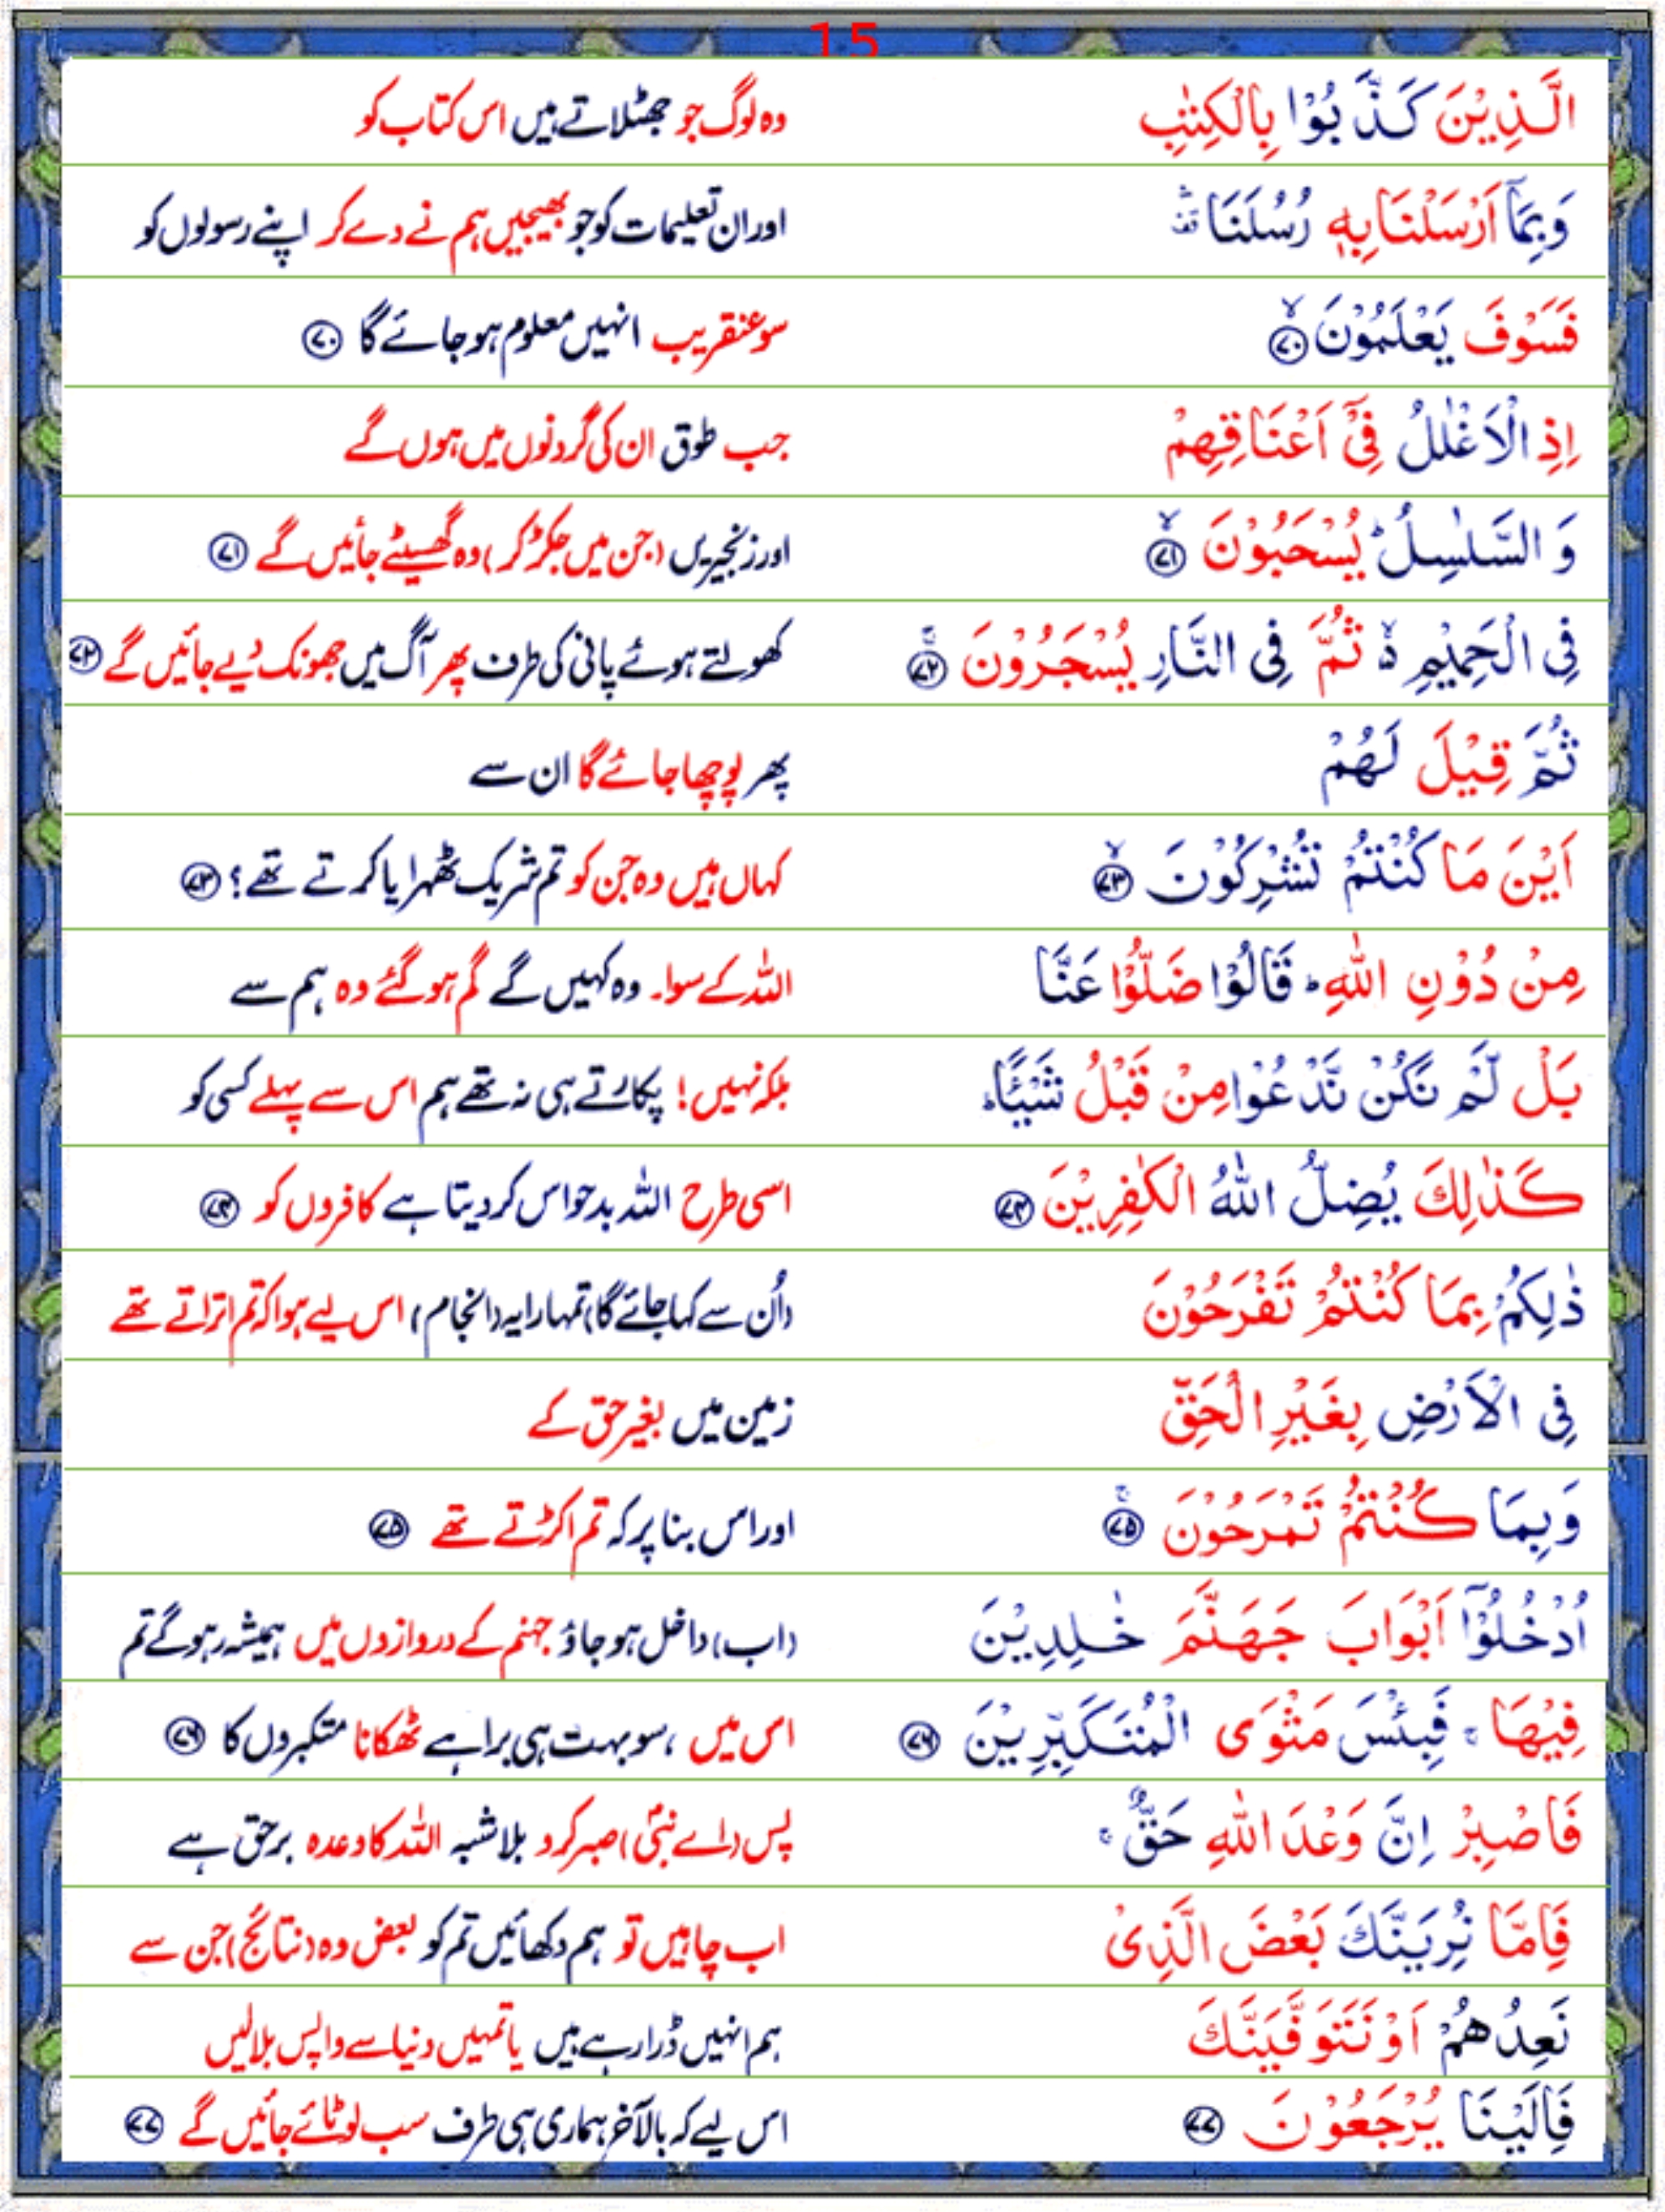 15
الَّذِيْنَ كَذَّبُوْا بِالْكِتٰبِ وہ لوگ جو جھٹلاتے ہیں اس کتاب کو
وَبِمَآ اَرْسَلْنَا بِهٖ رُسُلَنَا ۛ۟ اور ان تعلیمات کو جو بھیجیں ہم نے دے کر اپنے رسولوں کو
فَسَوْفَ يَعْلَمُوْنَ ۙ﴿۷۰﴾ سو عنقریب انہیں معلوم ہوجائے گا ﴿۷۰﴾
اِذِ الْاَغْلٰلُ فِىْٓ اَعْنَاقِهِمْ جب طوق ان کی گردنوں میں ہوں گے
وَ السَّلٰسِلُ ؕ يُسْحَبُوْنَ ۙ﴿۷۱﴾ اور زنجیریں (جن میں جکڑ کر) وہ گھسیٹے جائیں گے ﴿۷۱﴾
فِى الْحَمِيْمِ ۙ۬ ثُمَّ فِى النَّارِ يُسْجَرُوْنَ ۚ﴿۷۲﴾ کھولتے ہوئے پانی کی طرف پھر آگ میں جھونک دیے جائیں گے ﴿۷۲﴾
ثُمَّ قِيْلَ لَهُمْ پھر پوچھا جائے گا ان سے
اَيْنَ مَا كُنْتُمْ تُشْرِكُوْنَ ۙ﴿۷۳﴾ کہاں ہیں وہ جن کو تم شریک ٹھہرایا کرتے تھے؟ ﴿۷۳﴾
مِنْ دُوْنِ اللّٰهِ ؕ قَالُوْا ضَلُّوْا عَنَّا اللہ کے سوا۔ وہ کہیں گے گم ہوگئے وہ ہم سے
بَلْ لَّمْ نَكُنْ نَّدْعُوْا مِنْ قَبْلُ شَيْـًٔا ؕ بلکہ نہیں! پکارتے ہی نہ تھے ہم اس سے پہلے کسی کو
كَذٰلِكَ يُضِلُّ اللّٰهُ الْكٰفِرِيْنَ ﴿۷۴﴾ اسی طرح اللہ بدحواس کردیتا ہے کافروں کو ﴿۷۴﴾
ذٰلِكُمْ بِمَا كُنْتُمْ تَفْرَحُوْنَ (اُن سے کہا جائے گا) تمہارا یہ (انجام) اس لیے ہوا کہ تم اتراتے تھے
فِى الْاَرْضِ بِغَيْرِ الْحَقِّ زمین میں بغیر حق کے
وَبِمَا كُنْتُمْ تَمْرَحُوْنَ ۚ﴿۷۵﴾ اور اس بنا پر کہ تم اکڑتے تھے ﴿۷۵﴾
اُدْخُلُوْٓا اَبْوَابَ جَهَنَّمَ خٰلِدِيْنَ (اب) داخل ہوجاؤ جہنم کے دروازوں میں ہمیشہ رہو گے تم
فِيْهَا ۚ فَبِئْسَ مَثْوَى الْمُتَكَبِّرِيْنَ ﴿۷۶﴾ اس میں، سو بہت ہی برا ہے ٹھکانا متکبروں کا ﴿۷۶﴾
فَاصْبِرْ اِنَّ وَعْدَ اللّٰهِ حَقٌّ ۚ پس (اے نبیؐ) صبر کرو بلاشبہ اللہ کا وعدہ برحق ہے
فَاِمَّا نُرِيَنَّكَ بَعْضَ الَّذِىْ اب چاہیں تو ہم دکھائیں تم کو بعض وہ (نتائج) جن سے
نَعِدُهُمْ اَوْ نَتَوَفَّيَنَّكَ ہم انہیں ڈرا رہے ہیں یا تمہیں دنیا سے واپس بلالیں
فَاِلَيْنَا يُرْجَعُوْنَ ﴿۷۷﴾ اس لیے کہ بالآخر ہماری ہی طرف سب لوٹائے جائیں گے ﴿۷۷﴾